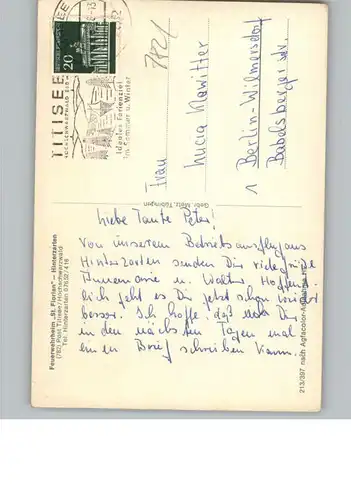 TITISEE
HOCHSCHWARZWALD 860 m
Ideales Ferienziel
im Sommer u. Winter
20
7821
Frau
Lucia Klawitter
1 Berlin-Wilmersdorf
Babelsberger Str.
Gebr. Metz, Tübingen
Feuerwehrheim „St. Florian" – Hinterzarten
(782) Post Titisee/Hochschwarzwald
Tel.: Hinterzarten 07652/416
Liebe Tante Peter!
Von unserem Betriebsausflug aus
Hinterzarten senden Dir viele Grüße
Annemarie u. Walter. Hoffent-
lich geht es Dir jetzt schon wieder
besser. Ich hoffe, daß ich Dir
in den nächsten Tagen mal
einen Brief schreiben kann.
213/397 nach Agfacolor-Aufnahme